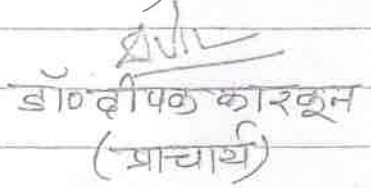 डॉ० दीपक कारकून
(प्राचार्य)